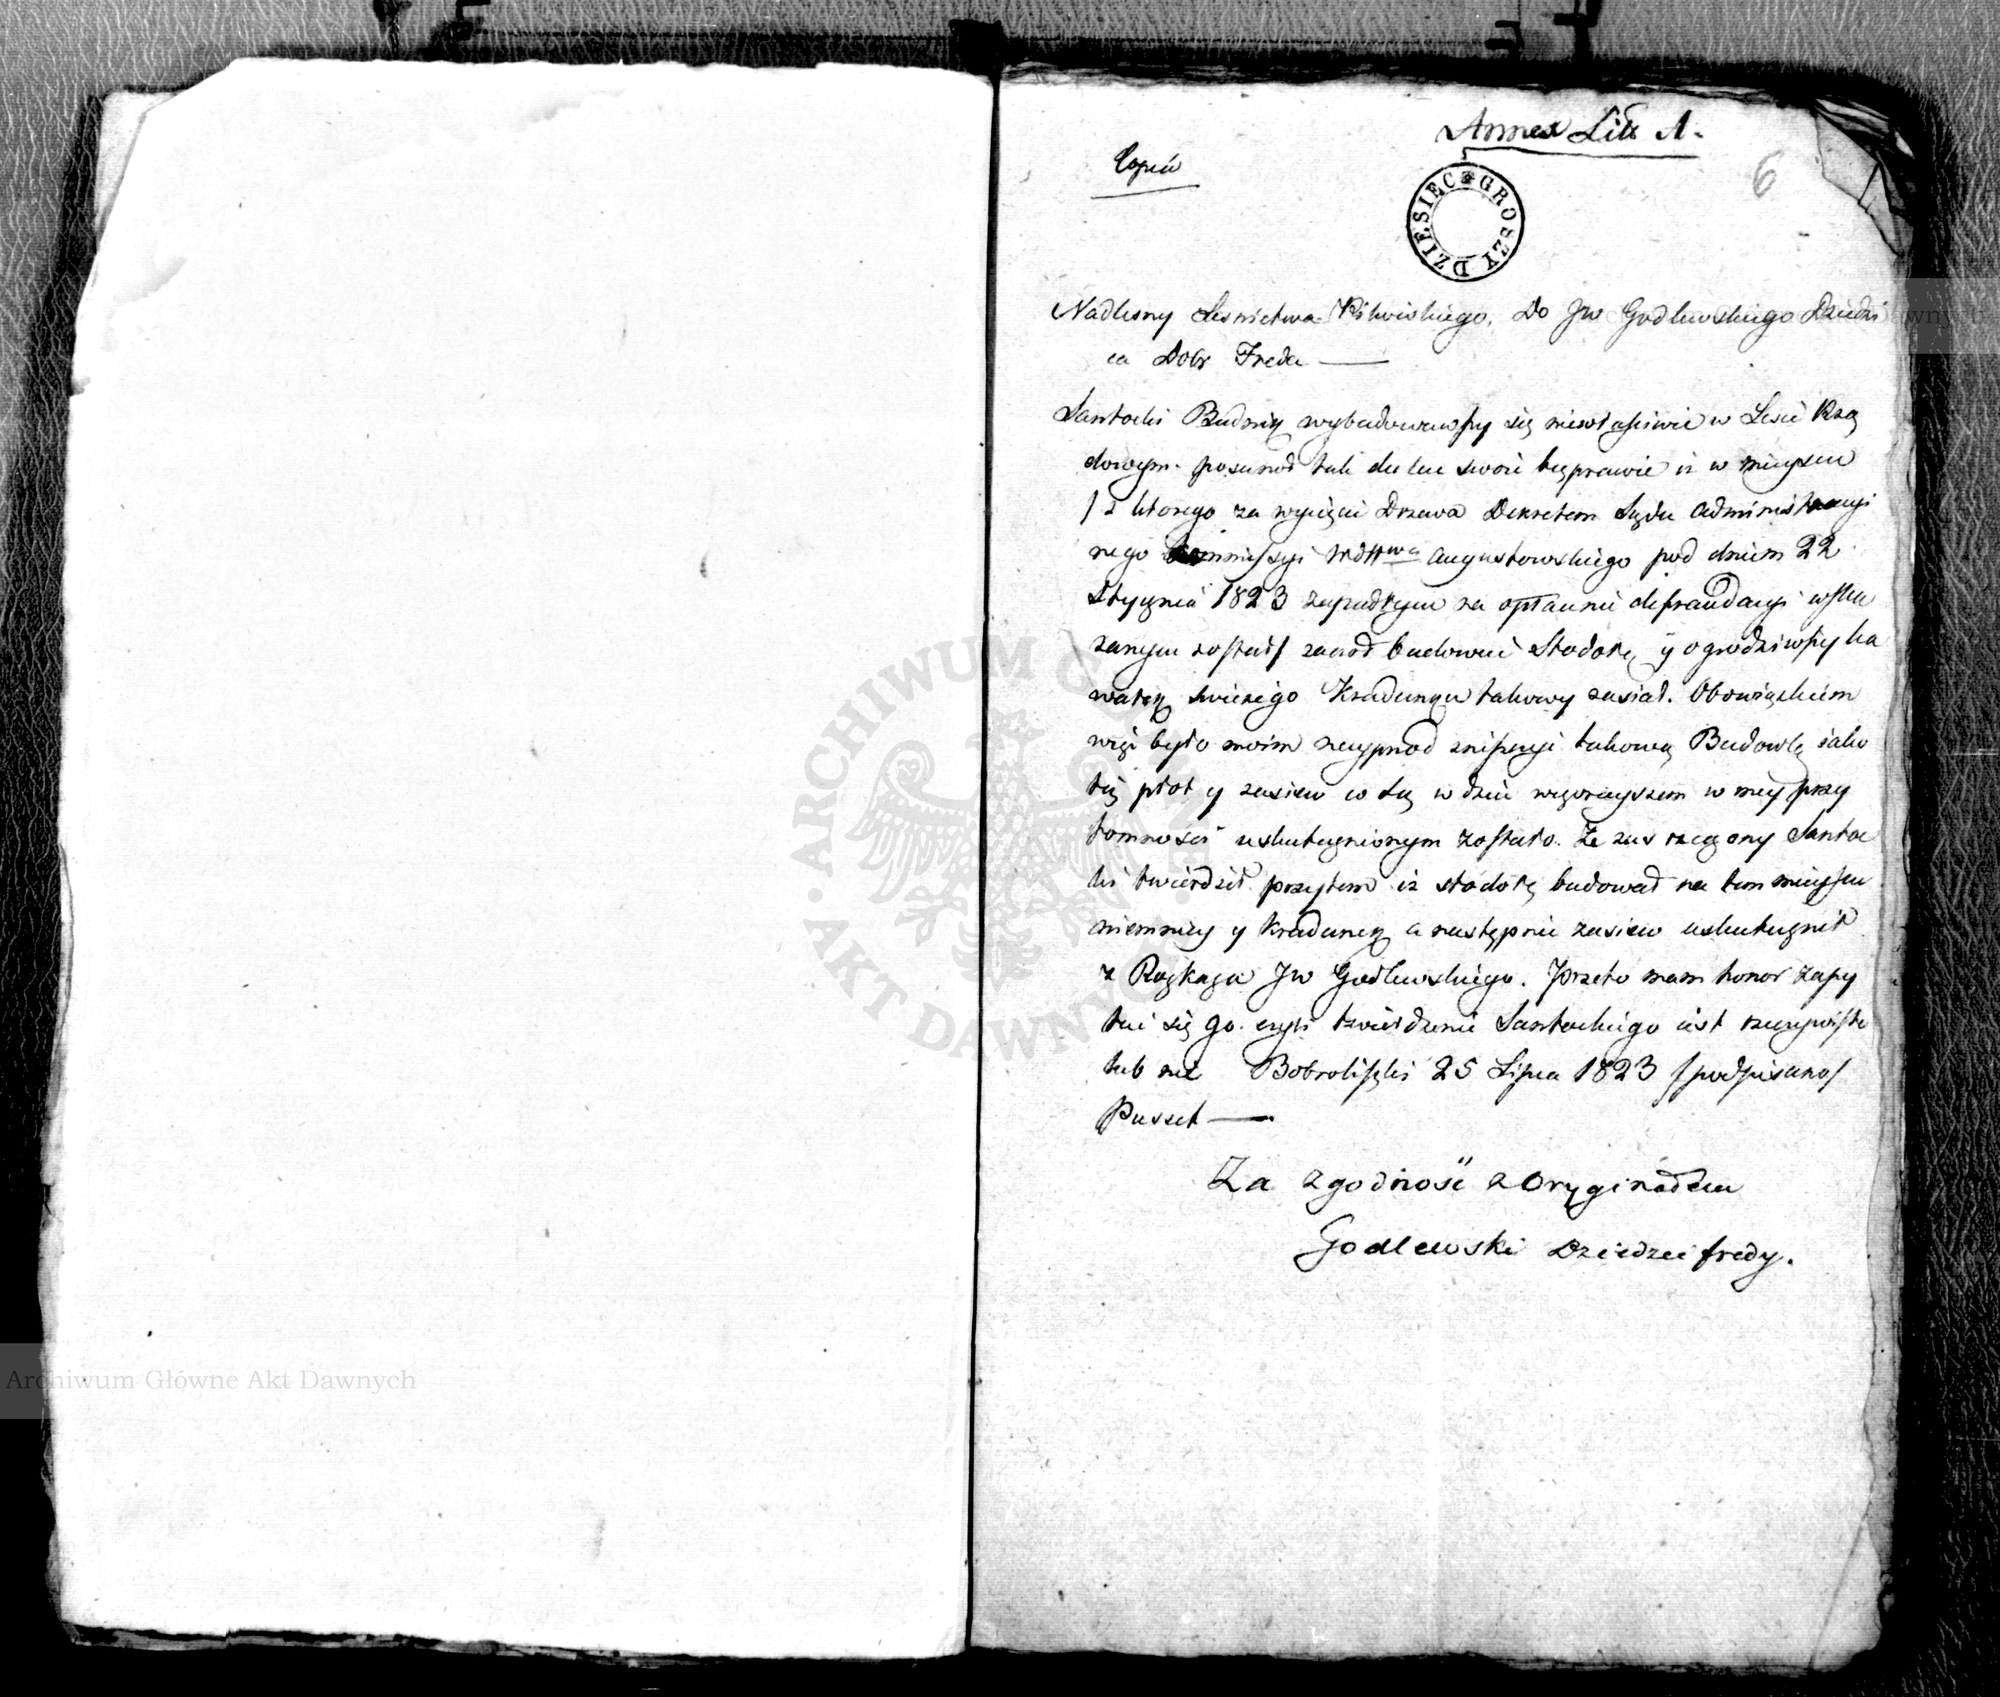 Annex Litt A.
Copia
6
DZIESIEC GROSZY
Nadlesny Lesnictwa Pilwiskiego, Do JW Godlewskiego Dziedzi
ca Dobr Freda —
Santocki Budnik wybudowawszy się niewłasciwie w Lesie Rzą
dowym posunoł tak dalece swoie bezprawie iż w mieyscu
/ z ktorego za wycięcie Drzewa Dekretem Sądu Administracyi
nego Kommissyi Wdttwa Augustowskiego pod dniem 22
Stycznia 1823 zapadłym na opłacenie defraudacyi wska
zanym został / zaczoł budować Stodołę y ogrodziwszy ka
wałek swieżego Kradunku takowy zasiał. Obowiązkiem
więc było moim nayprzod zniszczyć takową Budowlę iako
też płot y zasiew co też w dniu wczorayszem w mey przy
tomności uskutecznionym zostało. Ze zas rzeczony Santoc
ki twierdził przytem iż stodołę budował na tem mieyscu
niemniey y Kradunek a następnie zasiew uskutecznił
z Rozkazu JW Godlewskiego. Przeto mam honor zapy
tać się go czyli twierdzenie Santockiego iest rzeczywiste
lub nie Bobroliszki 25 Lipca 1823 / podpisano /
Pusset —
Za zgodność z Oryginałem
Godlewski Dziedzic fredy.
ARCHIWUM GŁÓWNE AKT DAWNYCH
Archiwum Główne Akt Dawnych